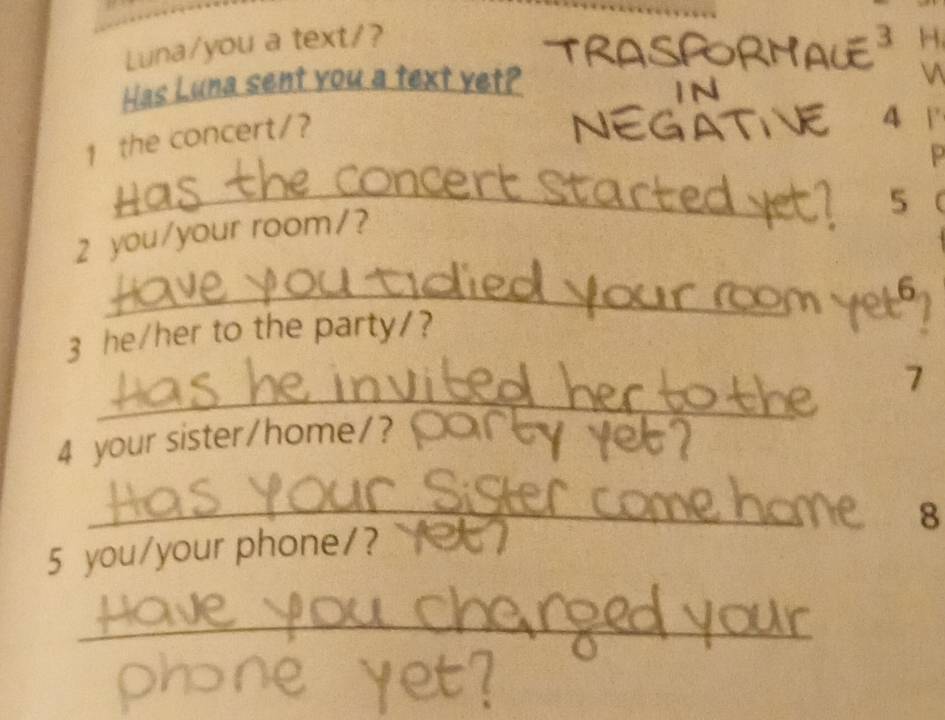 Luna/you a text/?
TRASFORMALE
IN
NEGATIVE
Has Luna sent you a text yet?
1 the concert/?
Has the concert started yet?
2 you/your room/?
Have you tidied your room yet?
3 he/her to the party/?
Has he invited her to the
party yet?
4 your sister/home/?
Has your sister come home
yet?
5 you/your phone/?
Have you charged your
phone yet?
3
4
5
6
7
8